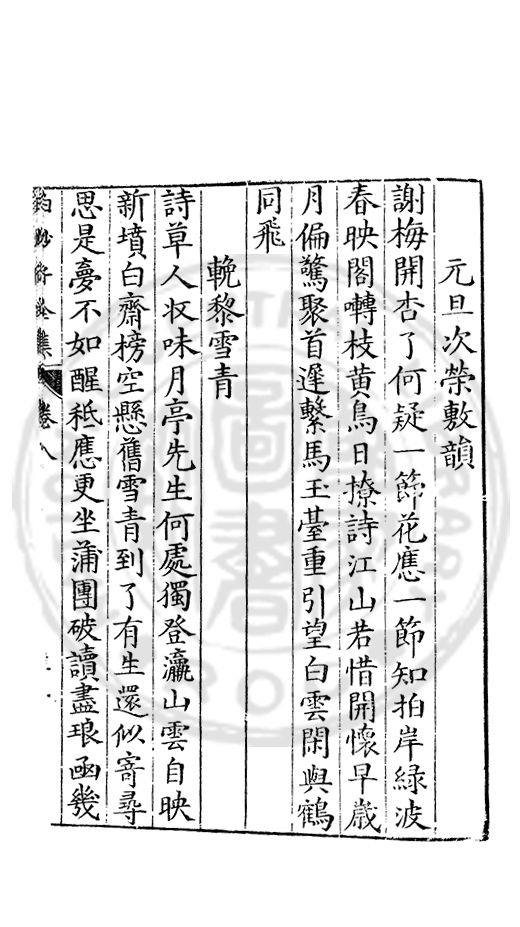 元旦次榮敷韻
謝梅開杏了何疑一節花應一節知拍岸綠波
春映閣囀枝黃鳥日撩詩江山若惜開懷早歲
月偏驚聚首遲繫馬玉臺重引望白雲閑與鶴
同飛
輓黎雪青
詩草人收味月亭先生何處獨登瀛山雲自映
新墳白齋榜空懸舊雪青到了有生還似寄尋
思是夢不如醒秪應更坐蒲團破讀盡琅函幾
集 卷八